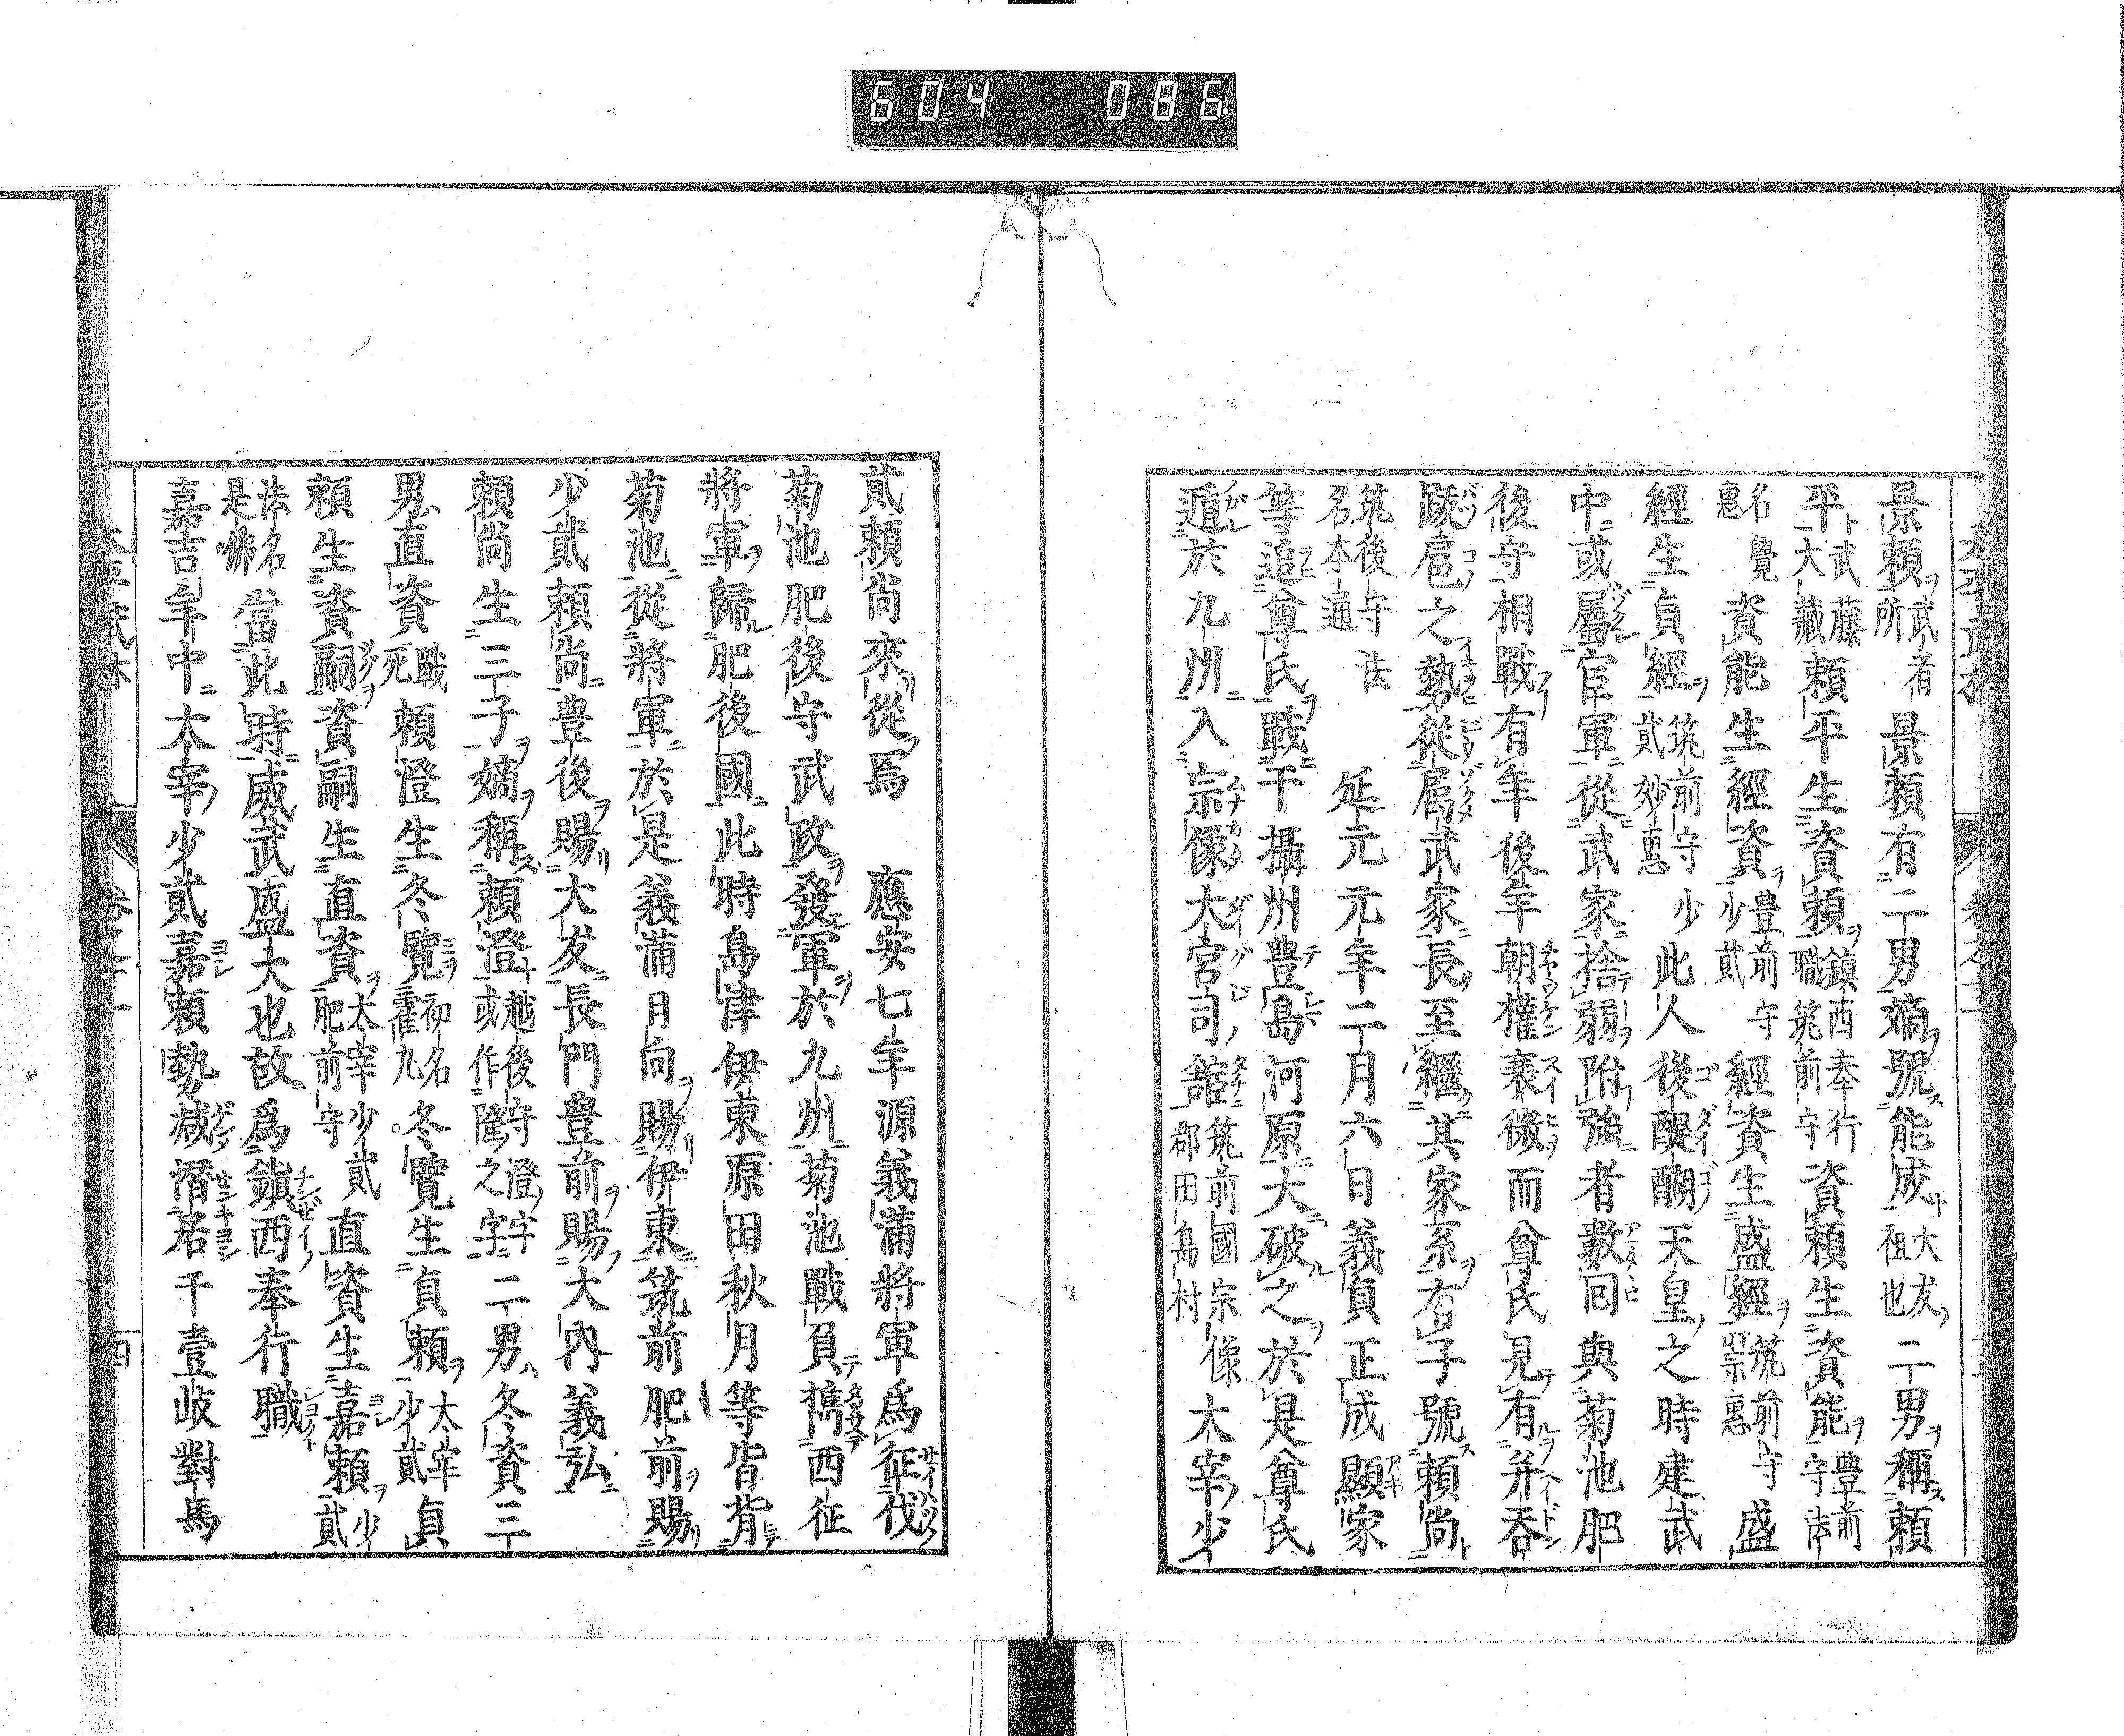 604 086
景頼武者所景頼有二男嫡號能成大友祖也二男稱頼
平武藤大藏頼平生資頼鎮西奉行職筑前守資頼生資能豊前守法
名覺惠資能生經資豊前守少貳經資生盛經筑前守崇惠盛
經生貞經筑前守少貳妙惠此人後醍醐天皇之時建武
中或屬官軍從武家捨弱附強者數回與菊池肥
後守相戰有年後年朝權衰微而尊氏見有并呑
跋扈之勢從属武家長至繼其家系有子號頼尚
筑後守法名本通延元元年二月六日義貞正成顯家
等追尊氏戰于攝州豊島河原大破之於是尊氏
遁於九州入宗像大宮司舘筑前國宗像郡田島村太宰少
貳頼尚來從焉應安七年源義滿將軍爲征伐
菊池肥後守武政發軍於九州菊池戰負擕西征
將軍歸肥後國此時島津伊東原田秋月等皆背
菊池從將軍於是義滿日向賜伊東筑前肥前賜
少貳頼尚豊後賜大友長門豊前賜大内義弘
頼尚生三子嫡稱頼澄越後守澄字或作隆之字二男冬資三
男直資戰死頼澄生冬覽初名靏九冬覽生貞頼太宰少貳貞
頼生資嗣資嗣生直資太宰少貳肥前守直資生嘉頼少貳
法名是咈當此時威武盛大也故爲鎮西奉行職
嘉吉年中太宰少貳嘉頼勢减潛居于壹岐對馬